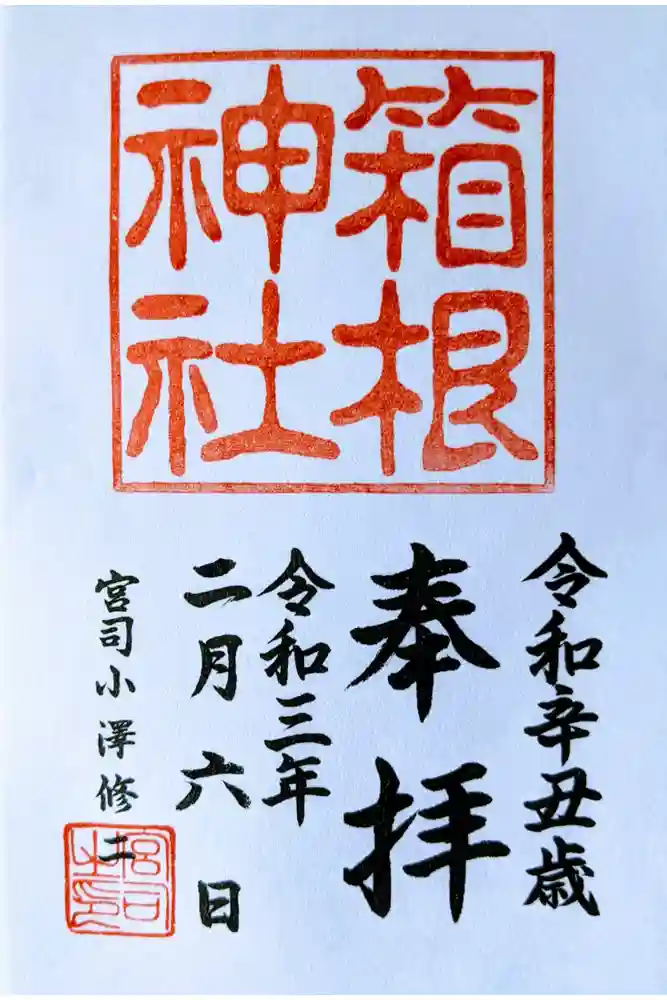 箱根
神社
令和辛丑歳
奉拝
令和三年
二月六日
宮司小澤修二